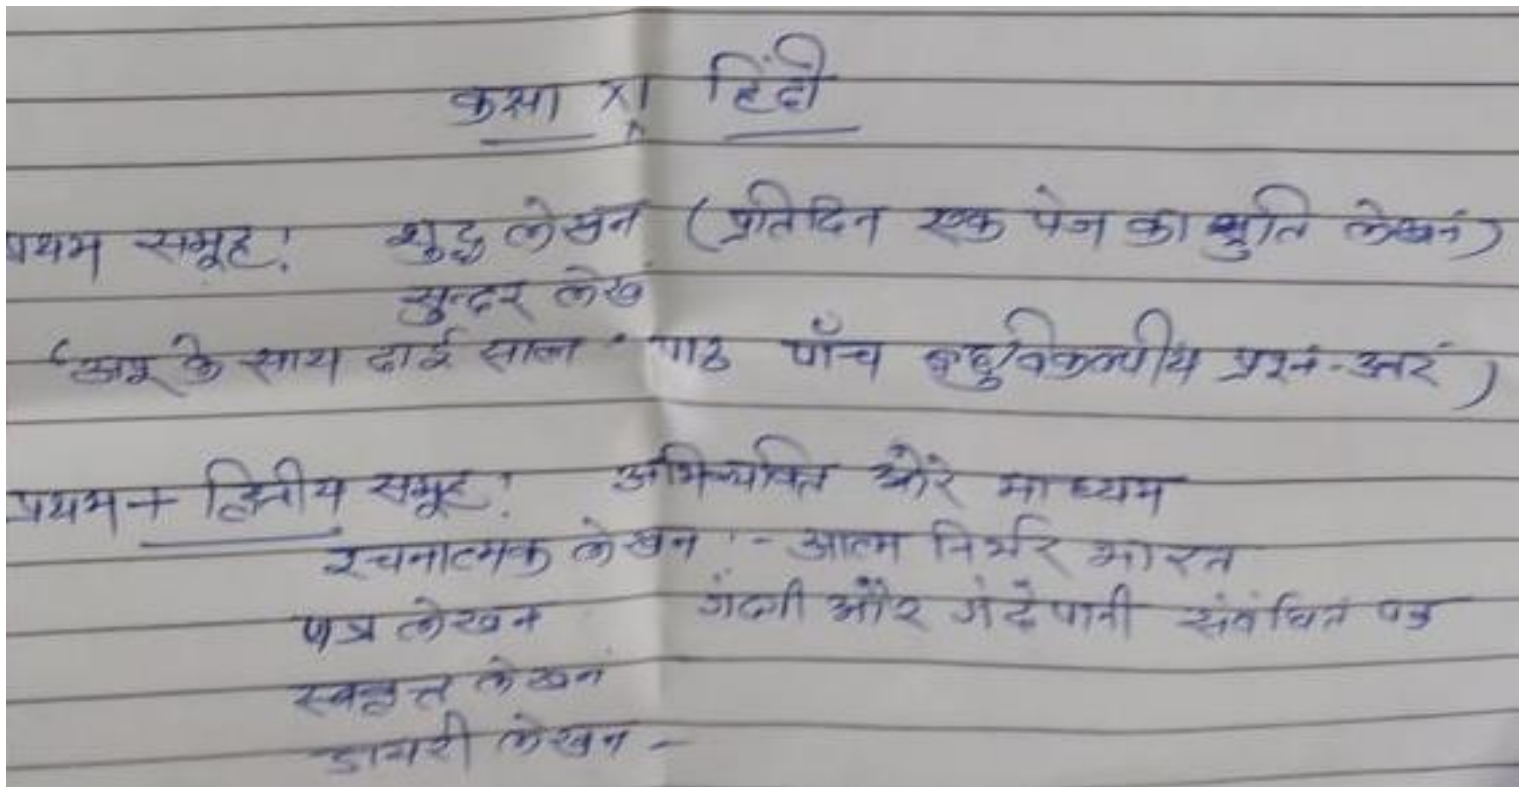 कक्षा XI हिंदी
प्रथम समूह! शुद्ध लेखन (प्रतिदिन एक पेज का श्रुति लेखन)
सुन्दर लेख
‘अपू के साथ ढाई साल' पाठ पाँच बहुविकल्पीय प्रश्न-उत्तर)
प्रथम + द्वितीय समूह! अभिव्यक्ति और माध्यम
रचनात्मक लेखन :- आत्म निर्भर भारत
पत्र लेखन गंदगी और गंदे पानी संबंधित पत्र
स्ववृत्त लेखन
डायरी लेखन -